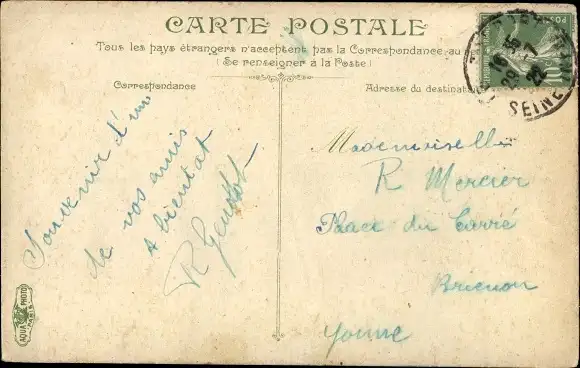 CARTE POSTALE
Tous les pays étrangers n'acceptent pas la Correspondance au
(Se renseigner à la Poste)
Correspondance
Adresse du destinat
16 35
29 - 7
22
SEINE
10
Souvenir d'un
de vos amis
A bientat
R
Mademoiselle
R Mercier
Place du Carré
Brienon
Yonne
AQUA PHOTO
PARIS